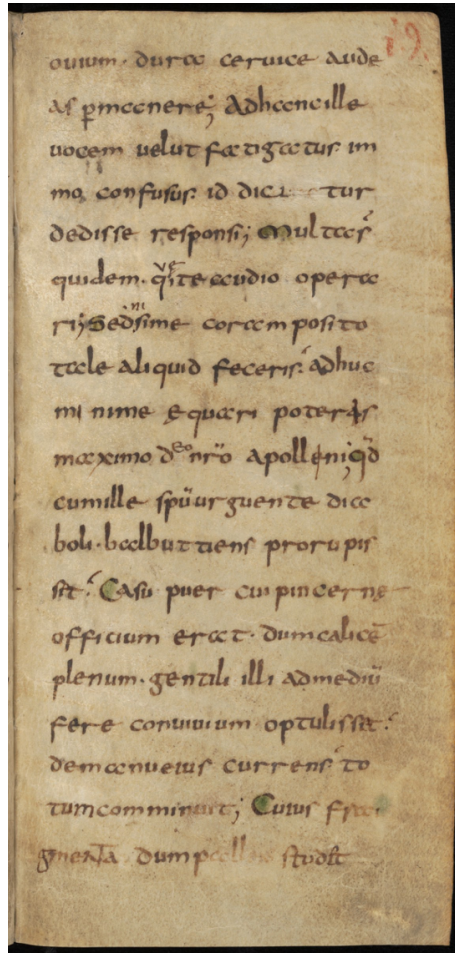 19.
ouium · dura ceruice aude
as p̱manere; Adhancille
uocem uelut fatigatus · im
mo confusus · id dic tur
dedisse responsi; Multas
quidem · q̄ te audio opera
riis sed nisi me coram posito
tale aliquid feceris · adhuc
minime ęquari poteris
maximo deo nr̄o apolleni; qd̄
cumille spū urguente dia
boli · balbuttiens prorupis
set · Casu puer cui pincernę
officium erat · dum calicē
plenum · gentili illi admediū
fere conuiuium optulisset ·
demanu eius currens · to
tum comminuit; Cuius fra
gmenta dum studet